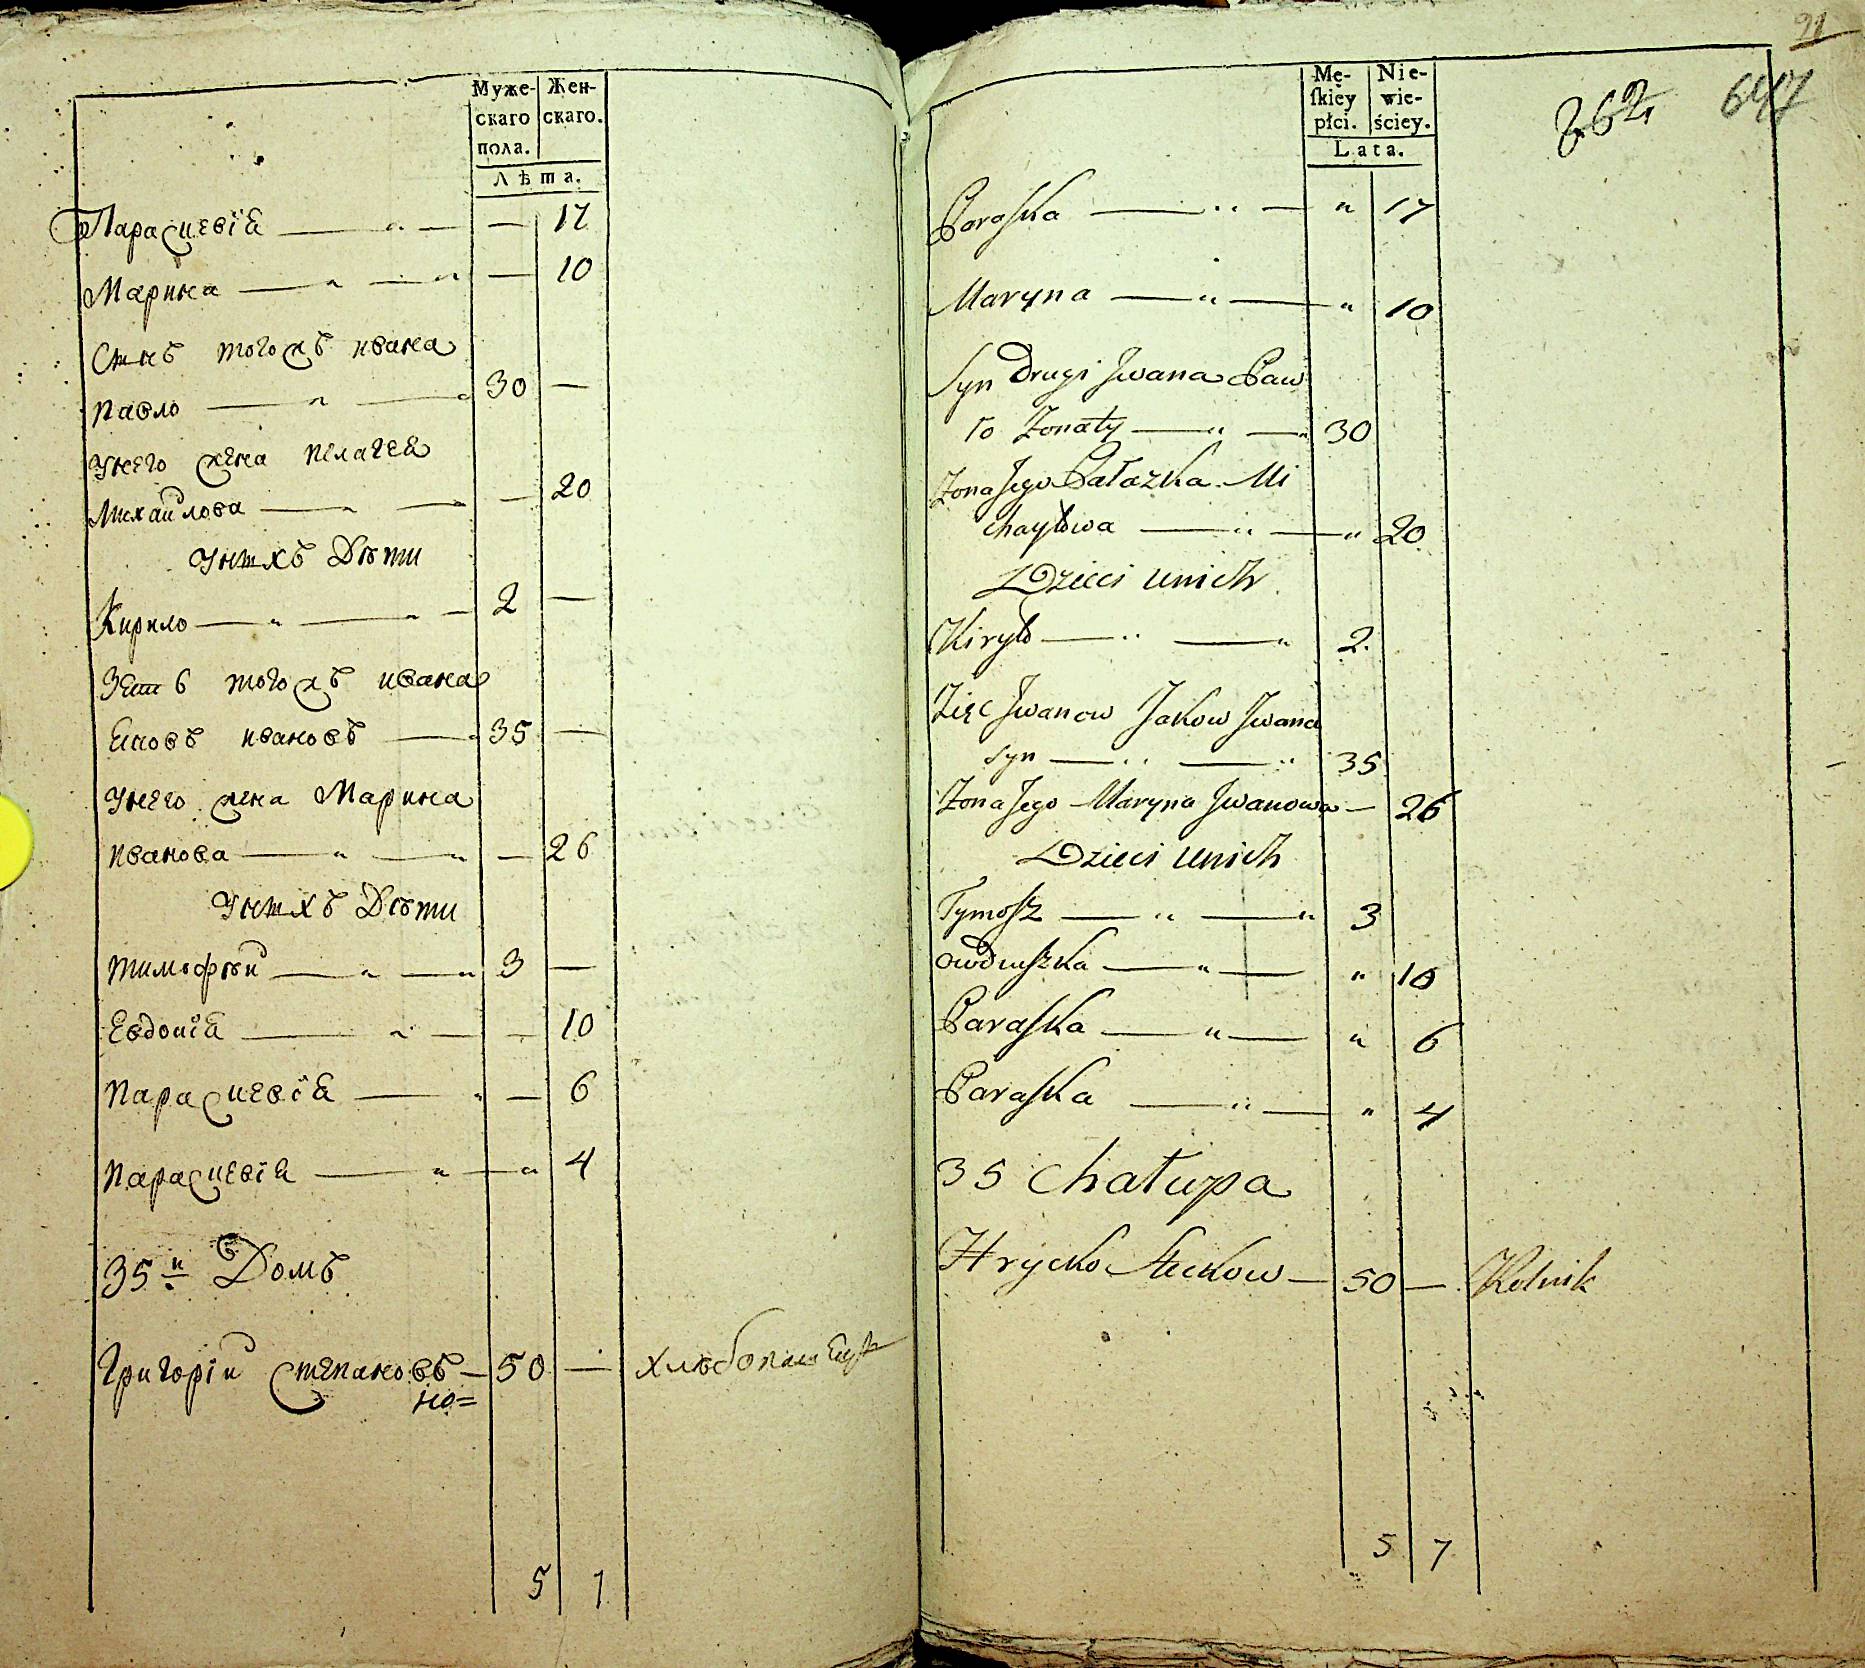 Муже-
скаго
пола.
Жен-
скаго.
Лѣта.
Параскевія — „ — — 17
Марина — „ — „ — 10
Сынъ тогожъ ивана
павло — „ — „ 30 —
унего жена пелагея
Михайлова — „ — — 20
унихъ Дѣти
Кирило — „ — „ — 2 —
Зеть тогожъ ивана
Яковъ ивановъ — „ 35 —
унего жена Марина
иванова — „ — „ — 26
унихъ Дѣти
тимофѣй — „ — „ 3 —
Евдокія — „ — — 10
параскевія — „ — 6
параскевія — „ — „ 4
35й Домъ
григорій степановъ — 50 — хлѣбопашецъ
но=
5 7
21
Mę-
ſkiey
płci.
Nie-
wie-
ściey.
Lata.
262
647
Paraſka — „ — „ 17
Maryna — „ — „ 10
Syn Drugi Jwana Paw
ło Zonaty — „ — „ 30
Zona Jego Pałazka Mi
chayłowa — „ — „ 20
Dzieci unich
Kiryło — „ — „ 2.
Zięc Jwanow Jakow Jwana
syn — „ — „ 35
Zona Jego Maryna Jwanowa — 26
Dzieci unich
Tymoſz — „ — „ 3
owduszka — „ — „ 10
Paraſka — „ — „ 6
Paraſka — „ — „ 4
35 Chałupa
Hrycko Steckow — 50 — Rolnik
5 7